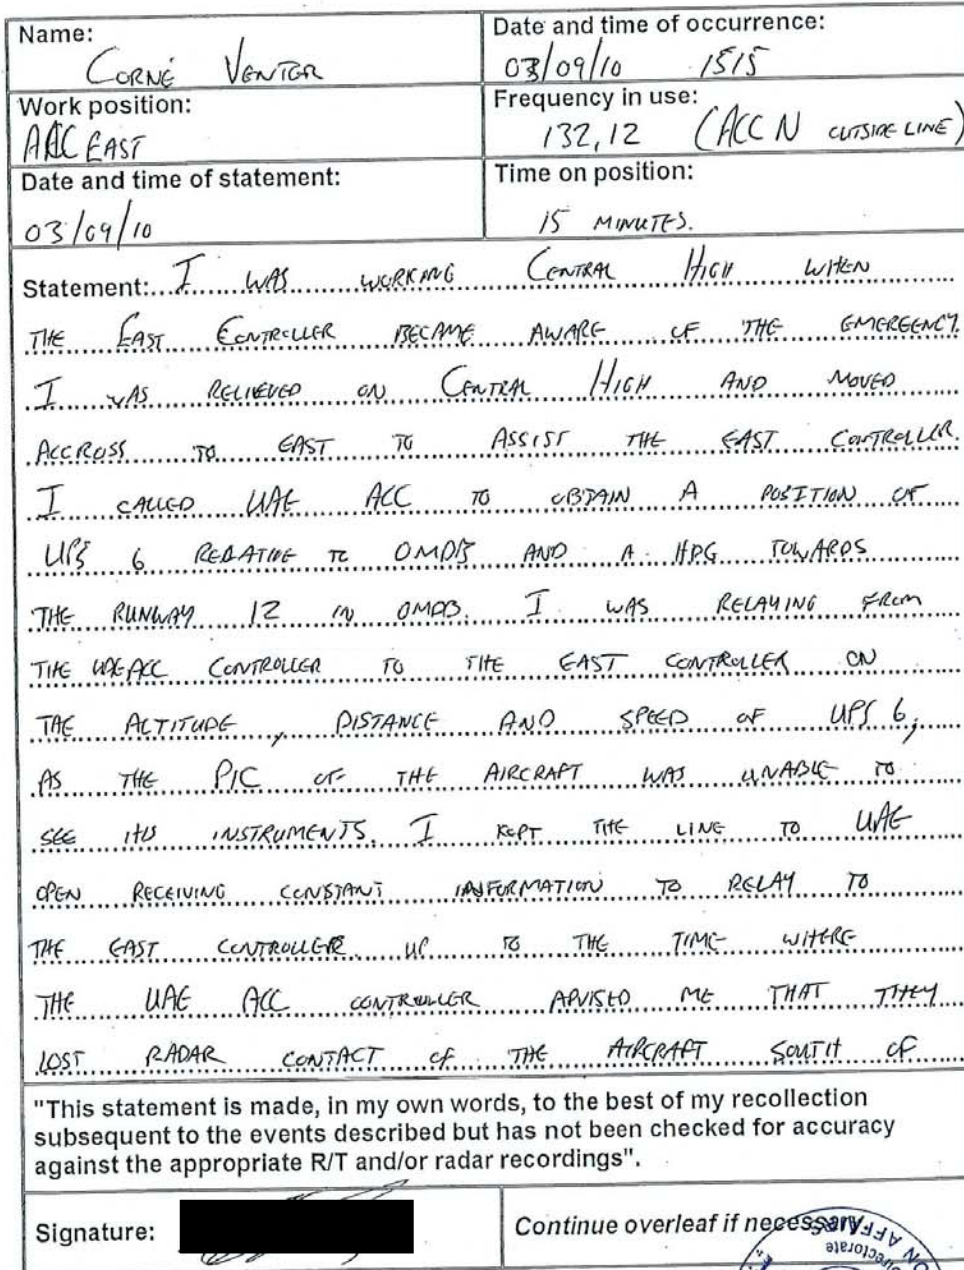 Name:
CORNÉ VENTER
Date and time of occurrence:
03/09/10 1515
Work position:
ACC EAST
Frequency in use:
132,12 (ACC N OUTSIDE LINE)
Date and time of statement:
03/09/10
Time on position:
15 MINUTES.
Statement: I WAS WORKING CENTRAL HIGH WHEN
THE EAST CONTROLLER BECAME AWARE OF THE EMERGENCY.
I WAS RELIEVED ON CENTRAL HIGH AND MOVED
ACCROSS TO EAST TO ASSIST THE EAST CONTROLLER.
I CALLED UAE ACC TO OBTAIN A POSITION OF
UPS 6 RELATIVE TO OMDB AND A HDG TOWARDS
THE RUNWAY 12 IN OMDB. I WAS RELAYING FROM
THE UAE ACC CONTROLLER TO THE EAST CONTROLLER ON
THE ALTITUDE, DISTANCE AND SPEED OF UPS 6,
AS THE PIC OF THE AIRCRAFT WAS UNABLE TO
SEE HIS INSTRUMENTS. I KEPT THE LINE TO UAE
OPEN RECEIVING CONSTANT INFORMATION TO RELAY TO
THE EAST CONTROLLER UP TO THE TIME WHERE
THE UAE ACC CONTROLLER ADVISED ME THAT THEY
LOST RADAR CONTACT OF THE AIRCRAFT SOUTH OF
"This statement is made, in my own words, to the best of my recollection
subsequent to the events described but has not been checked for accuracy
against the appropriate R/T and/or radar recordings".
Signature:
Continue overleaf if necessary